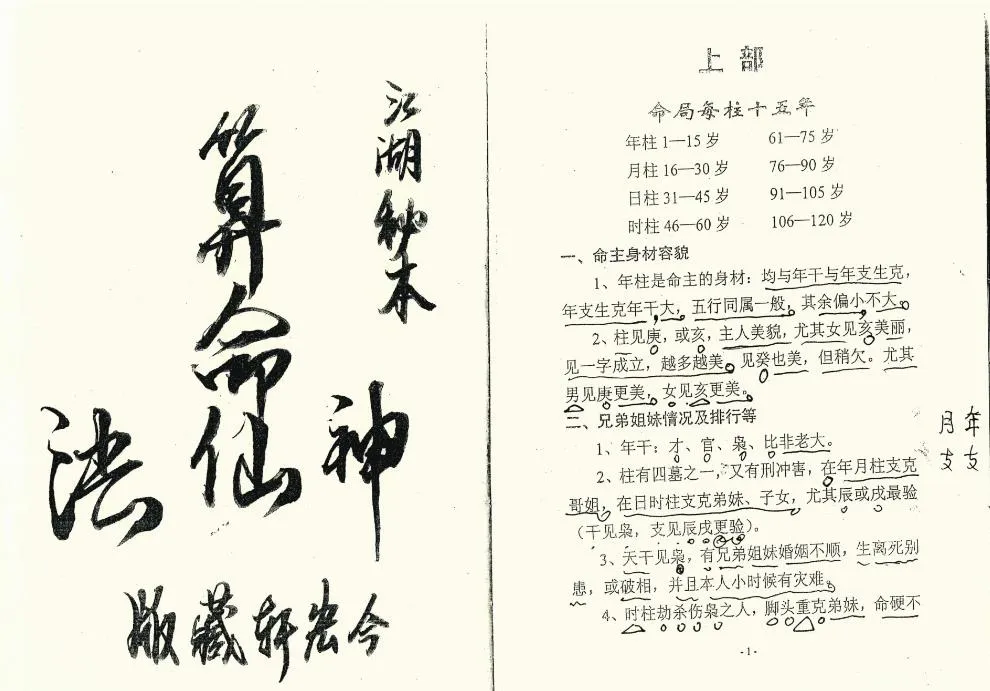 江湖秘本
算命
神仙法
今宏轩藏版
上部
命局每柱十五年
年柱1—15岁 61—75岁
月柱16—30岁 76—90岁
日柱31—45岁 91—105岁
时柱46—60岁 106—120岁
一、命主身材容貌
1、年柱是命主的身材：均与年干与年支生克，
年支生克年干大，五行同属一般，其余偏小不大。
2、柱见庚，或亥，主人美貌，尤其女见亥美丽，
见一字成立，越多越美。见癸也美，但稍欠。尤其
男见庚更美，女见亥更美。
二、兄弟姐妹情况及排行等
1、年干：才、官、枭、比非老大。
2、柱有四墓之一，又有刑冲害，在年月柱支克
哥姐，在日时柱支克弟妹、子女，尤其辰或戌最验
（干见枭，支见辰戌更验）。
3、天干见枭，有兄弟姐妹婚姻不顺，生离死别
患，或破相，并且本人小时候有灾难。
4、时柱劫杀伤枭之人，脚头重克弟妹，命硬不
-1-
年支
月支